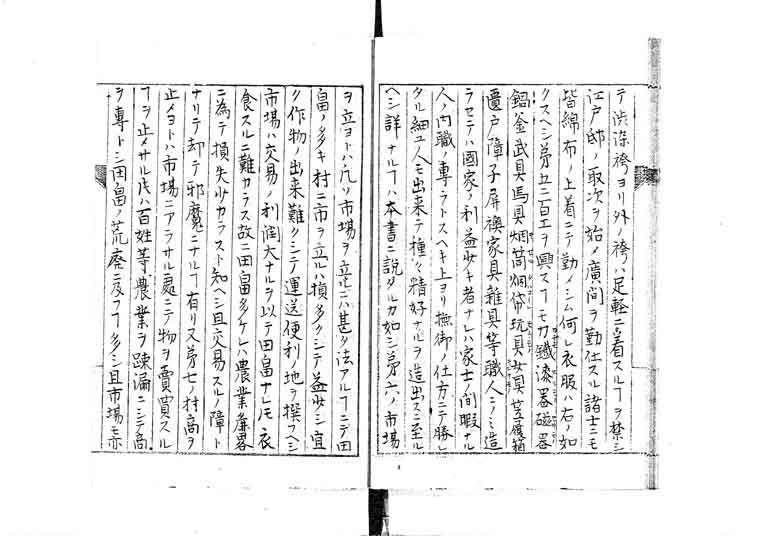 テ渋染袴ヨリ外ノ袴ハ足軽ニ著スルヿヲ禁シ
江戸邸ノ取次ヲ始メ廣間ヲ勤仕スル諸士ニモ
皆綿布ノ上着ニテ勤メシム何レ衣服ハ右ノ如
クスヘシ第五ニ百工ヲ興スヿモカ鐵漆器磁器
鍋釜武具馬具烟筒烟帒玩具女具笠履箱
遣戸障子屏襖家具雜具等職人ニノミ造
ラセテハ國家ノ利益少キ者ナレハ家士ノ間暇ナル
人ノ内職ノ專ラトスヘキ上ヨリ撫御ノ仕方ニテ勝レ
タル細工人モ出来テ種々精好ナルヲ造出スニ至ル
ヘシ詳ナルヿハ本書ニ説タルカ如シ第六ノ市場
ヲ立ヨトハ凢ソ市場ヲ立ルニハ甚タ法アルヿニテ田
畠ノ多キ村ニ市ヲ立ルハ損多クシテ益少シ宜
ク作物ノ出来難クシテ運送便利ノ地ヲ撰フヘシ
市場ハ交易ノ利潤大ナルヲ以テ田畠ナレモ衣
食スルニ難カラス故ニ田畠多ケレハ農業麁畧
ニ為テ損失少カラスト知ヘシ且交易スルノ障ト
ナリテ却テ邪魔ニナルヿ有リ又第七ノ村商ヲ
止メヨトハ市場ニアラサル處ニテ物ヲ賣買スル
ヿヲ止メサル片ハ百姓等農業ヲ踈漏ニシテ商
ヲ專トシ田畠ノ荒廢ニ及フヿ多シ且市場モ亦